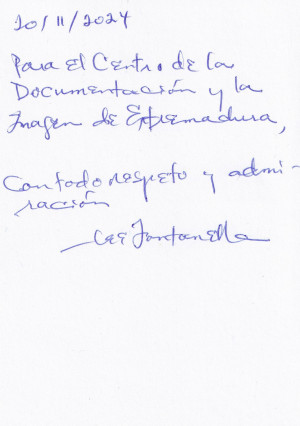 20/11/2024
Para el Centro de la
Documentación y la
Imagen de Extremadura,
Con todo respeto y admi-
ración
Lee Fontanella